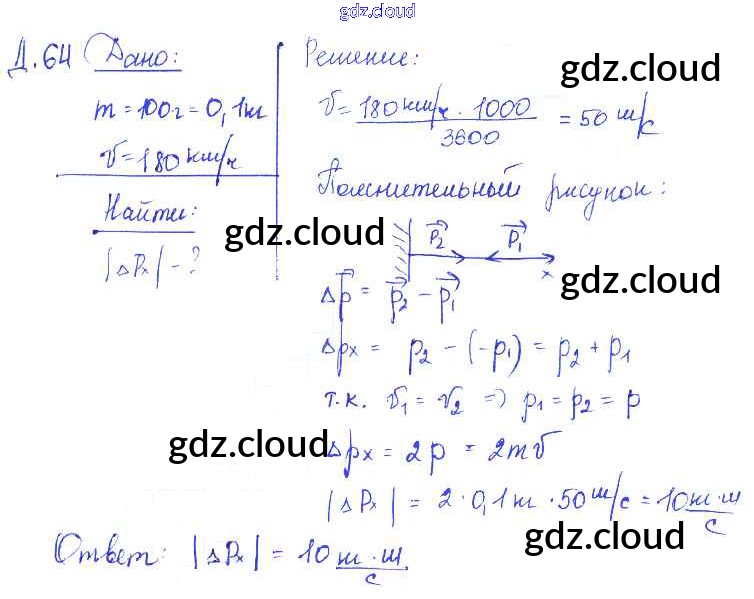 gdz.cloud
Д.64 Дано:
m = 100г = 0,1кг
v = 180 км/ч
Найти:
|Δpₓ| - ?
Решение:
gdz.cloud
v = 180 км/ч · 1000 / 3600 = 50 м/с
gdz.cloud
Пояснительный рисунок:
gdz.cloud
p⃗₂ p⃗₁
x
gdz.cloud
Δp⃗ = p⃗₂ - p⃗₁
Δpx = p₂ - (-p₁) = p₂ + p₁
т.к. v₁ = v₂ => p₁ = p₂ = p
gdz.cloud
Δpx = 2p = 2mv
gdz.cloud
|Δpₓ| = 2 · 0,1кг · 50 м/с = 10 кг · м / с
gdz.cloud
Ответ: |Δpₓ| = 10 кг · м / с.